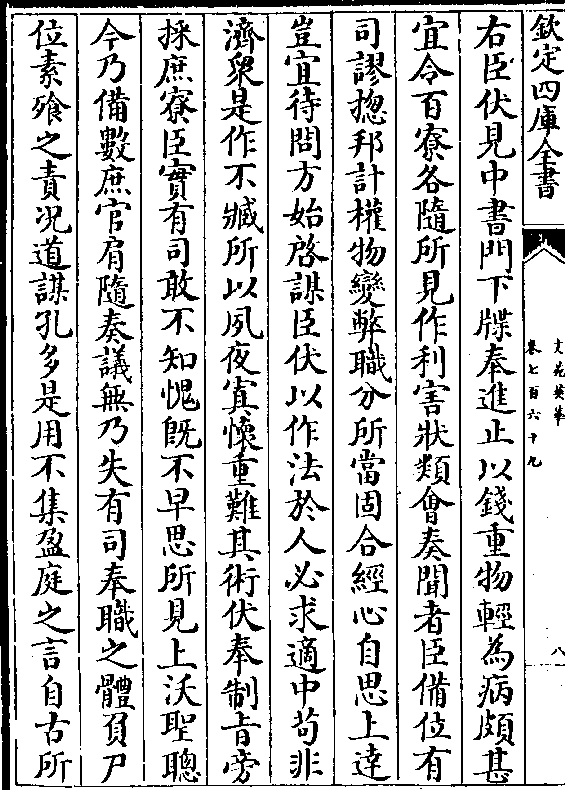 欽定四庫全書
文苑英華
卷七百六十九
八
右臣伏見中書門下牒奉進止以錢重物輕為病頗甚
宜令百寮各隨所見作利害狀類會奏聞者臣備位有
司謬揔邦計權物變弊職分所當固合經心自思上達
豈宜待問方始啓謀臣伏以作法於人必求適中苟非
濟衆是作不臧所以夙夜寘懷重難其術伏奉制㫖旁
採庶寮臣實有司敢不知愧旣不早思所見上沃聖聰
今乃備數庶官肩隨奏議無乃失有司奉職之體負尸
位素飱之責况道謀孔多是用不集盈庭之言自古所